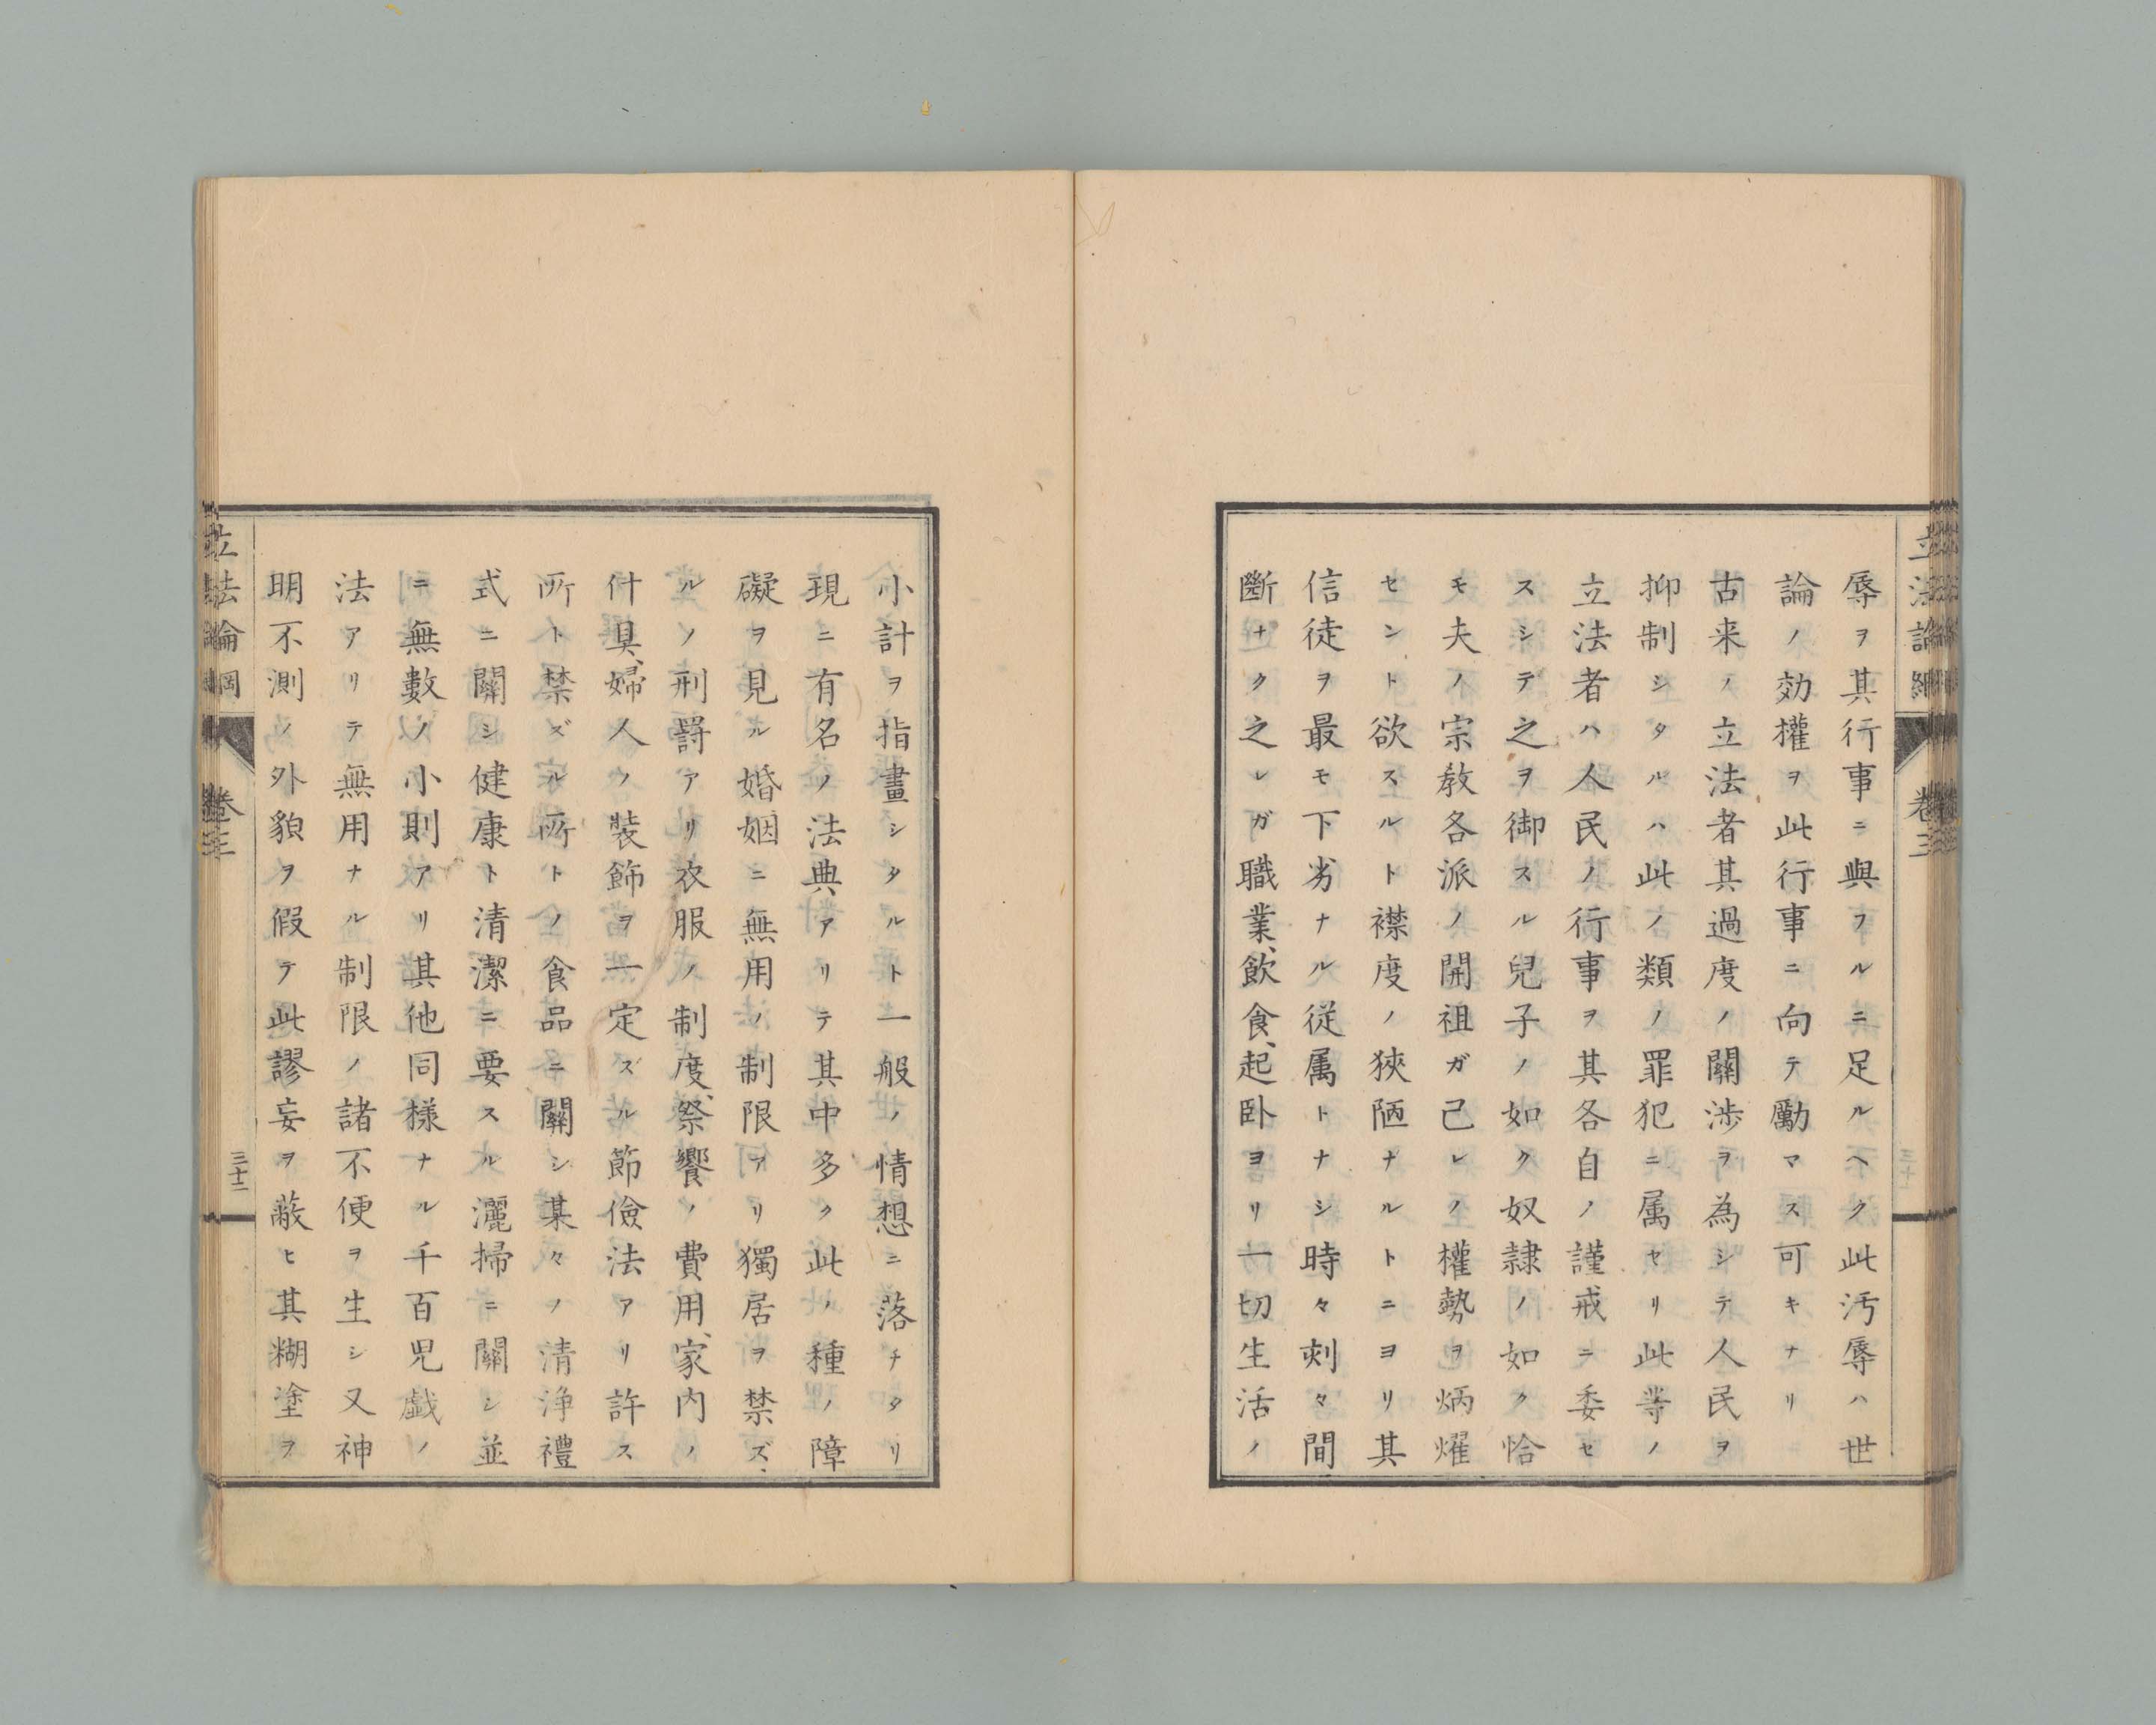 立法論綱 卷三
辱ヲ其行事ニ與フルニ足ルヘク此汚辱ハ世
論ノ効權ヲ此行事ニ向テ勵マス可キナリ
古来ノ立法者其過度ノ關渉ヲ為シテ人民ヲ
抑制シタルハ此ノ類ノ罪犯ニ属セリ此等ノ
立法者ハ人民ノ行事ヲ其各自ノ謹戒ニ委セ
スシテ之ヲ御スル兒子ノ如ク奴隷ノ如ク恰
モ夫ノ宗教各派ノ開祖ガ己レノ權勢ヲ炳燿
セント欲スルト襟度ノ狹陋ナルトニヨリ其
信徒ヲ最モ下劣ナル従属トナシ時々刻々間
斷ナク之レガ職業、飲食、起卧ヨリ一切生活ノ
小計ヲ指畫シタルト一般ノ情想ニ落チタリ
現ニ有名ノ法典アリテ其中多ク此ノ種ノ障
礙ヲ見ル婚姻ニ無用ノ制限アリ獨居ヲ禁ズ、
ルノ刑罸アリ衣服ノ制度、祭饗ノ費用、家内ノ
什具、婦人ノ裝飾ヲ一定ズル節儉法アリ許ス
所ト禁ズル所トノ食品ニ關シ某々ノ清浄禮
式ニ關シ健康ト清潔ニ要スル灑掃ニ關シ並
ニ無數ノ小則アリ其他同樣ナル千百児戯ノ
法アリテ無用ナル制限ノ諸不便ヲ生シ又神
明不測ノ外貌ヲ假テ此謬妄ヲ蔽ヒ其糊塗ヲ
立法論綱 卷三 三十二